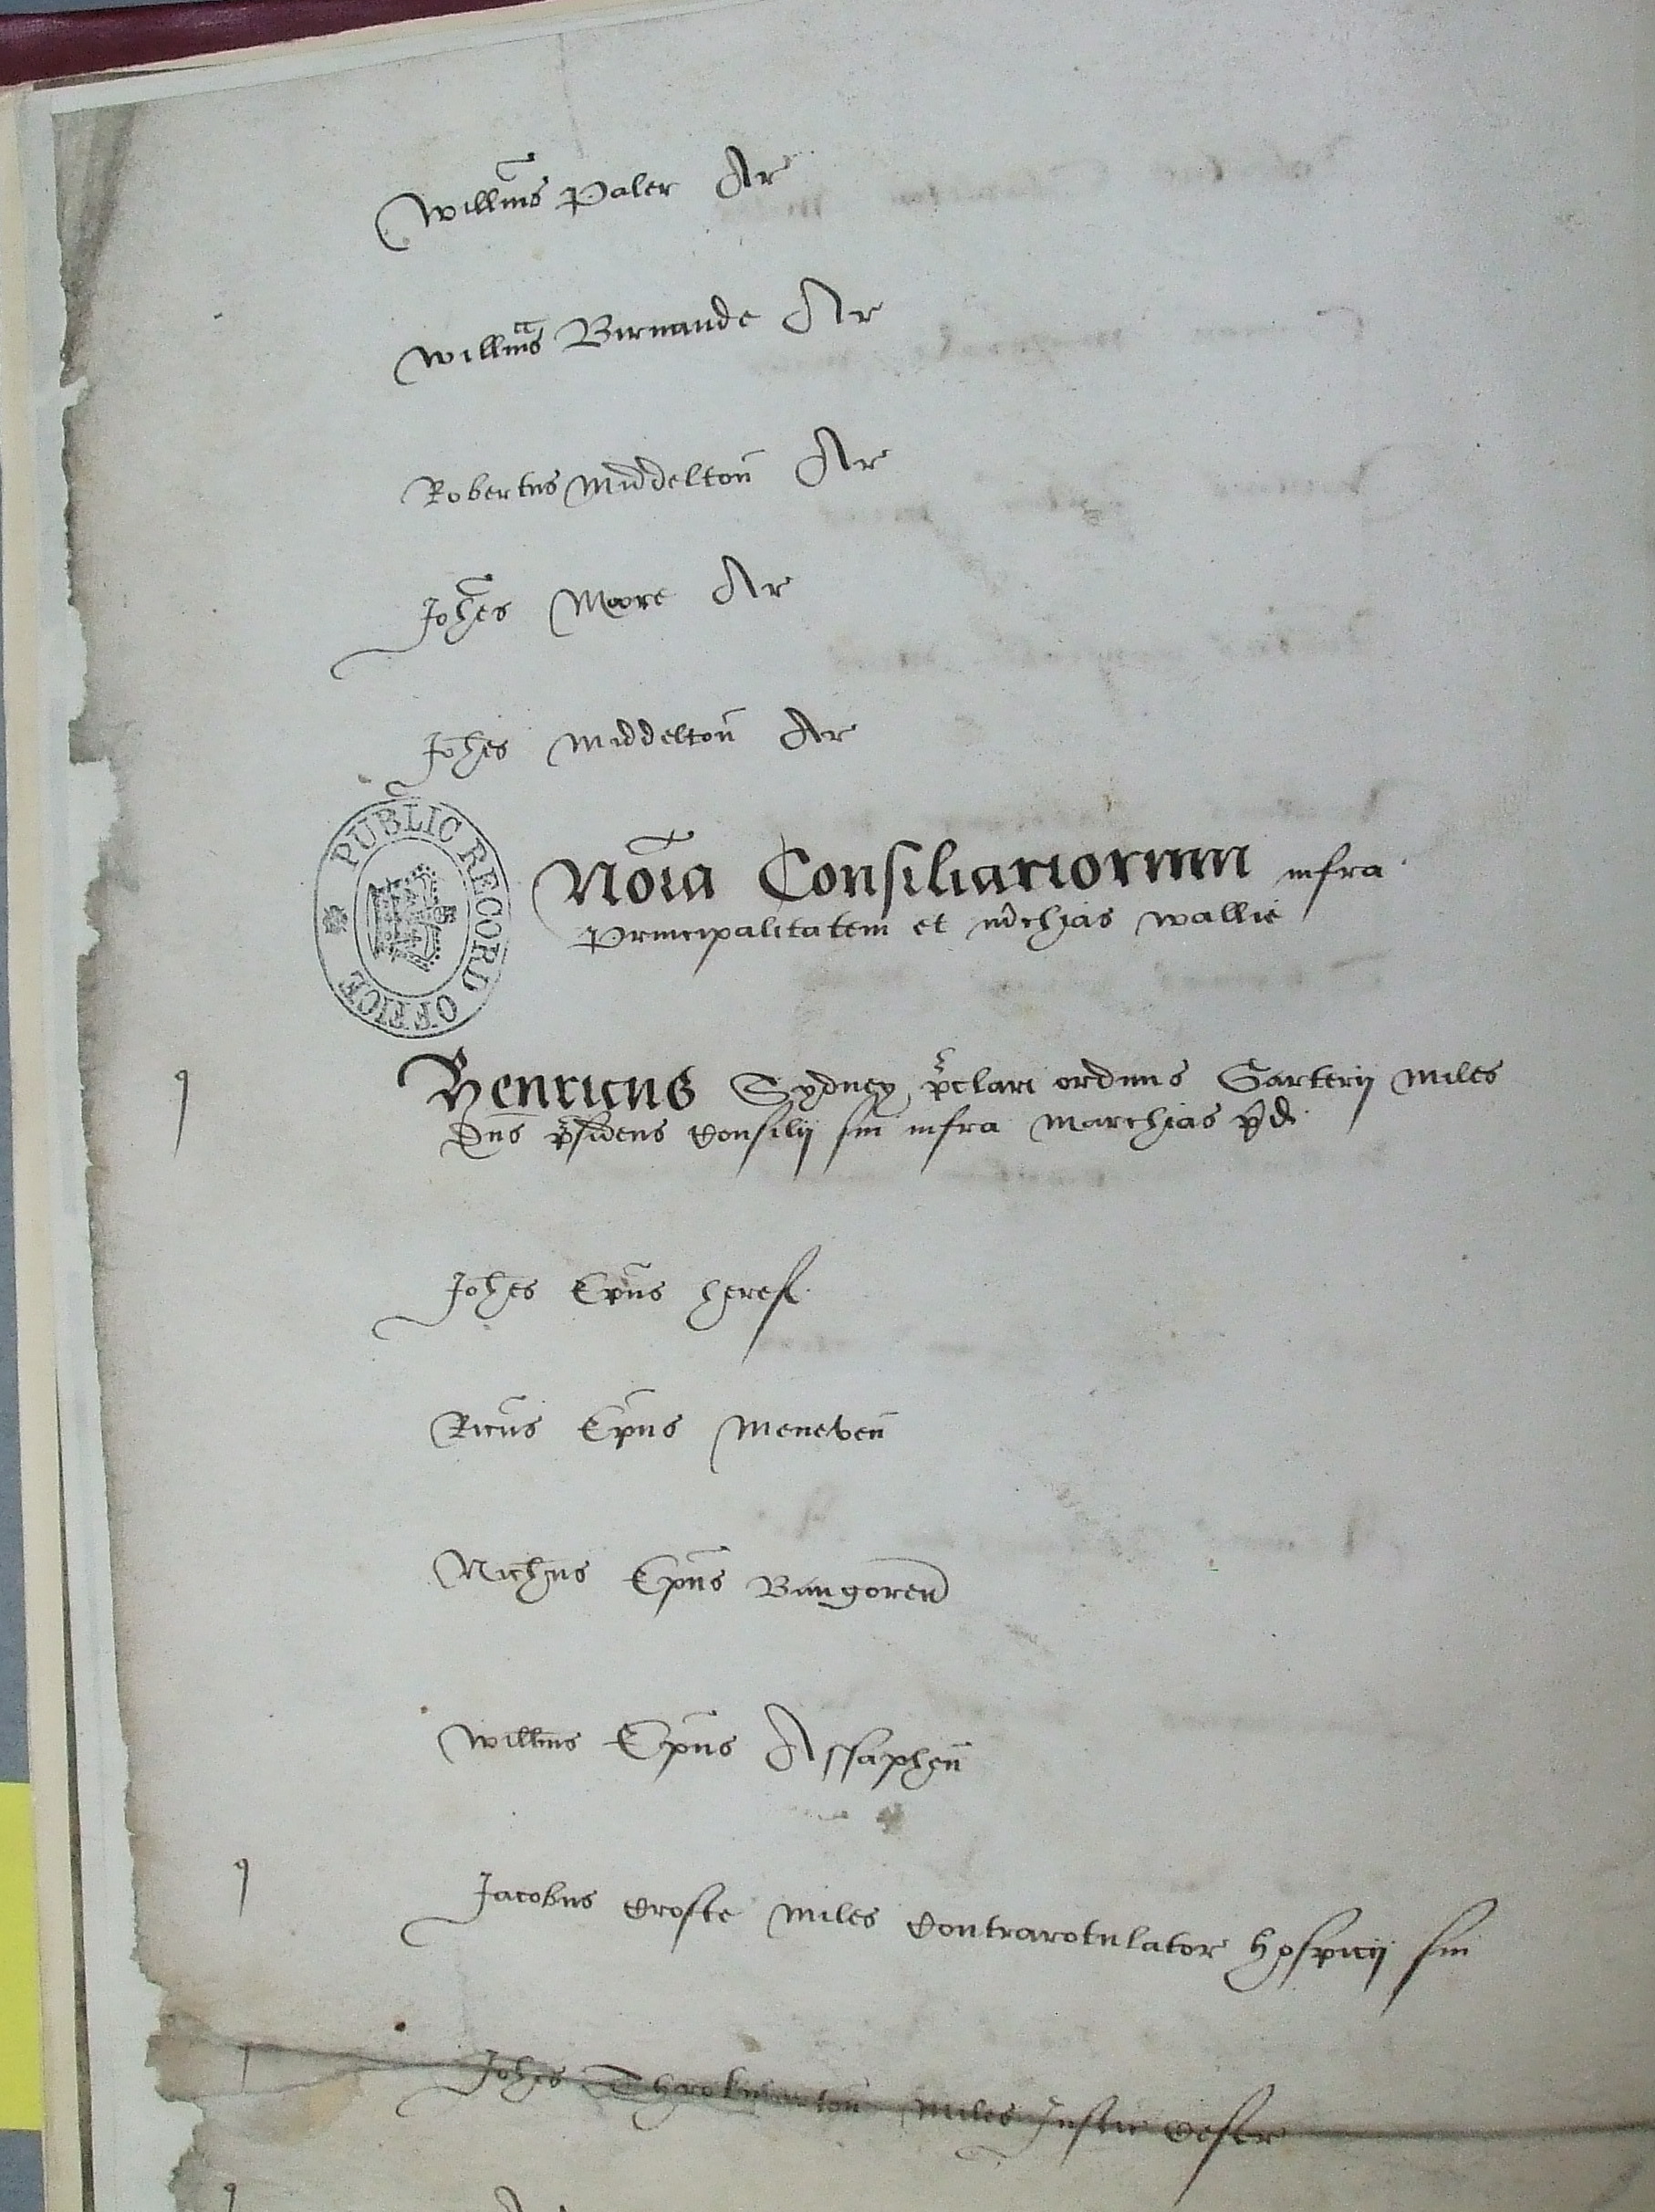 Willm̃s Paler Ar
Willm̃s Birnande Ar
Robertus Middelton̄ Ar
Joh̃es Moore Ar
Joh̃es Middelton̄ Ar
PUBLIC RECORD OFFICE
Nõia Consiliariorum infra
Principalitatem et m̃chias Wallie
Henricus Sydney p̃clari ordinis Garterij miles
Dn̄s p̃sidens Consilij sui infra Marchias p̃d
Joh̃es Ep̃us heref
Ric̃us Ep̃us Meneven̄
Nich̃us Ep̃us Bangoren̄
Willm̃s Ep̃us Assaphen̄
Jacobus Crofte miles Contrarotulator hospicij sui
Joh̃es Throkmarton̄ miles Justic Cestr